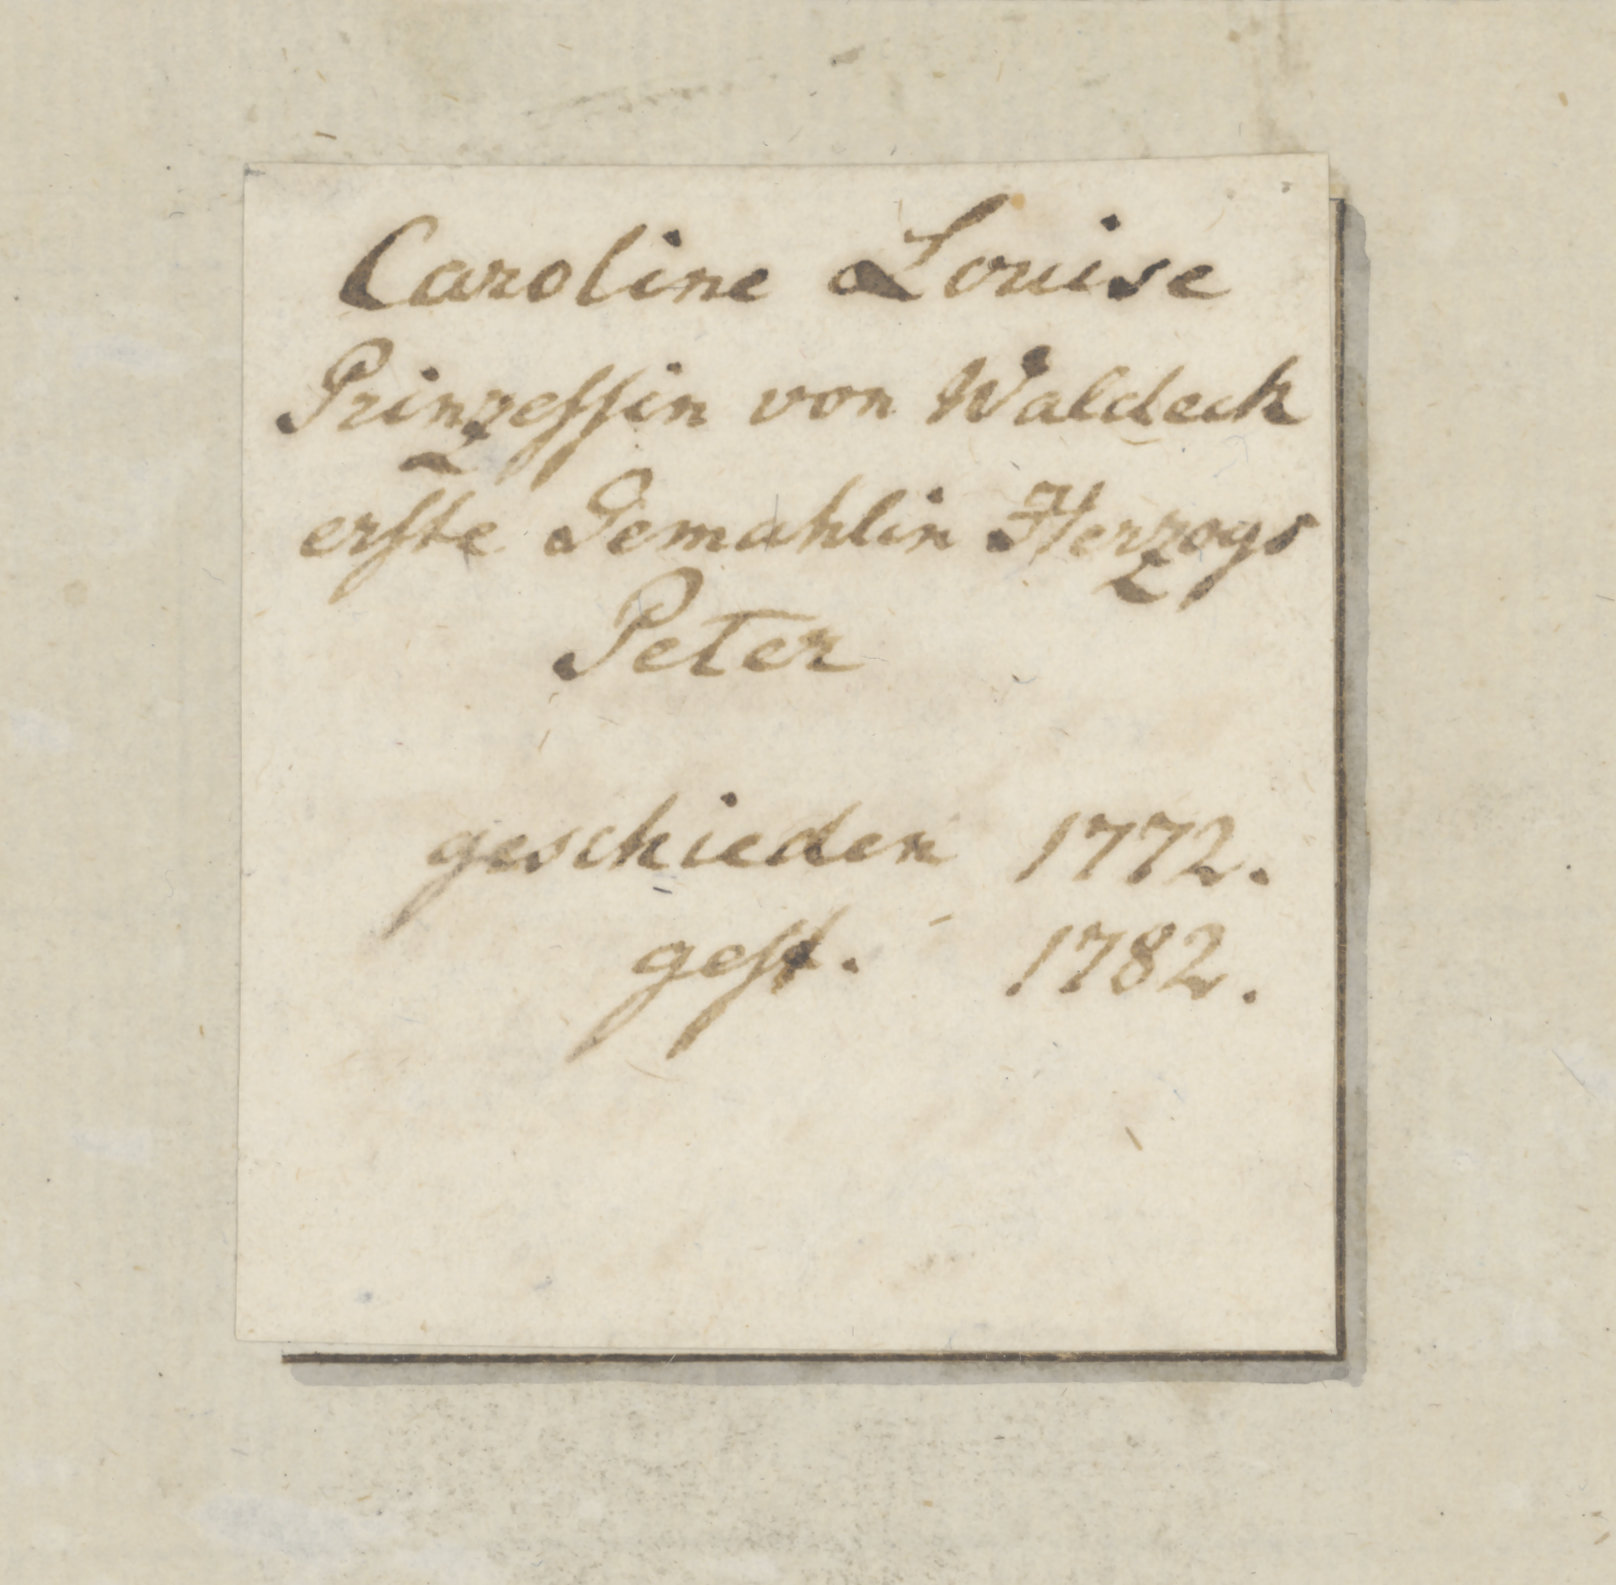 Caroline Louise
Prinzeſſin von Waldeck
erſte Gemahlin Herzogs
Peter
geschieden 1772.
geſt. 1782.